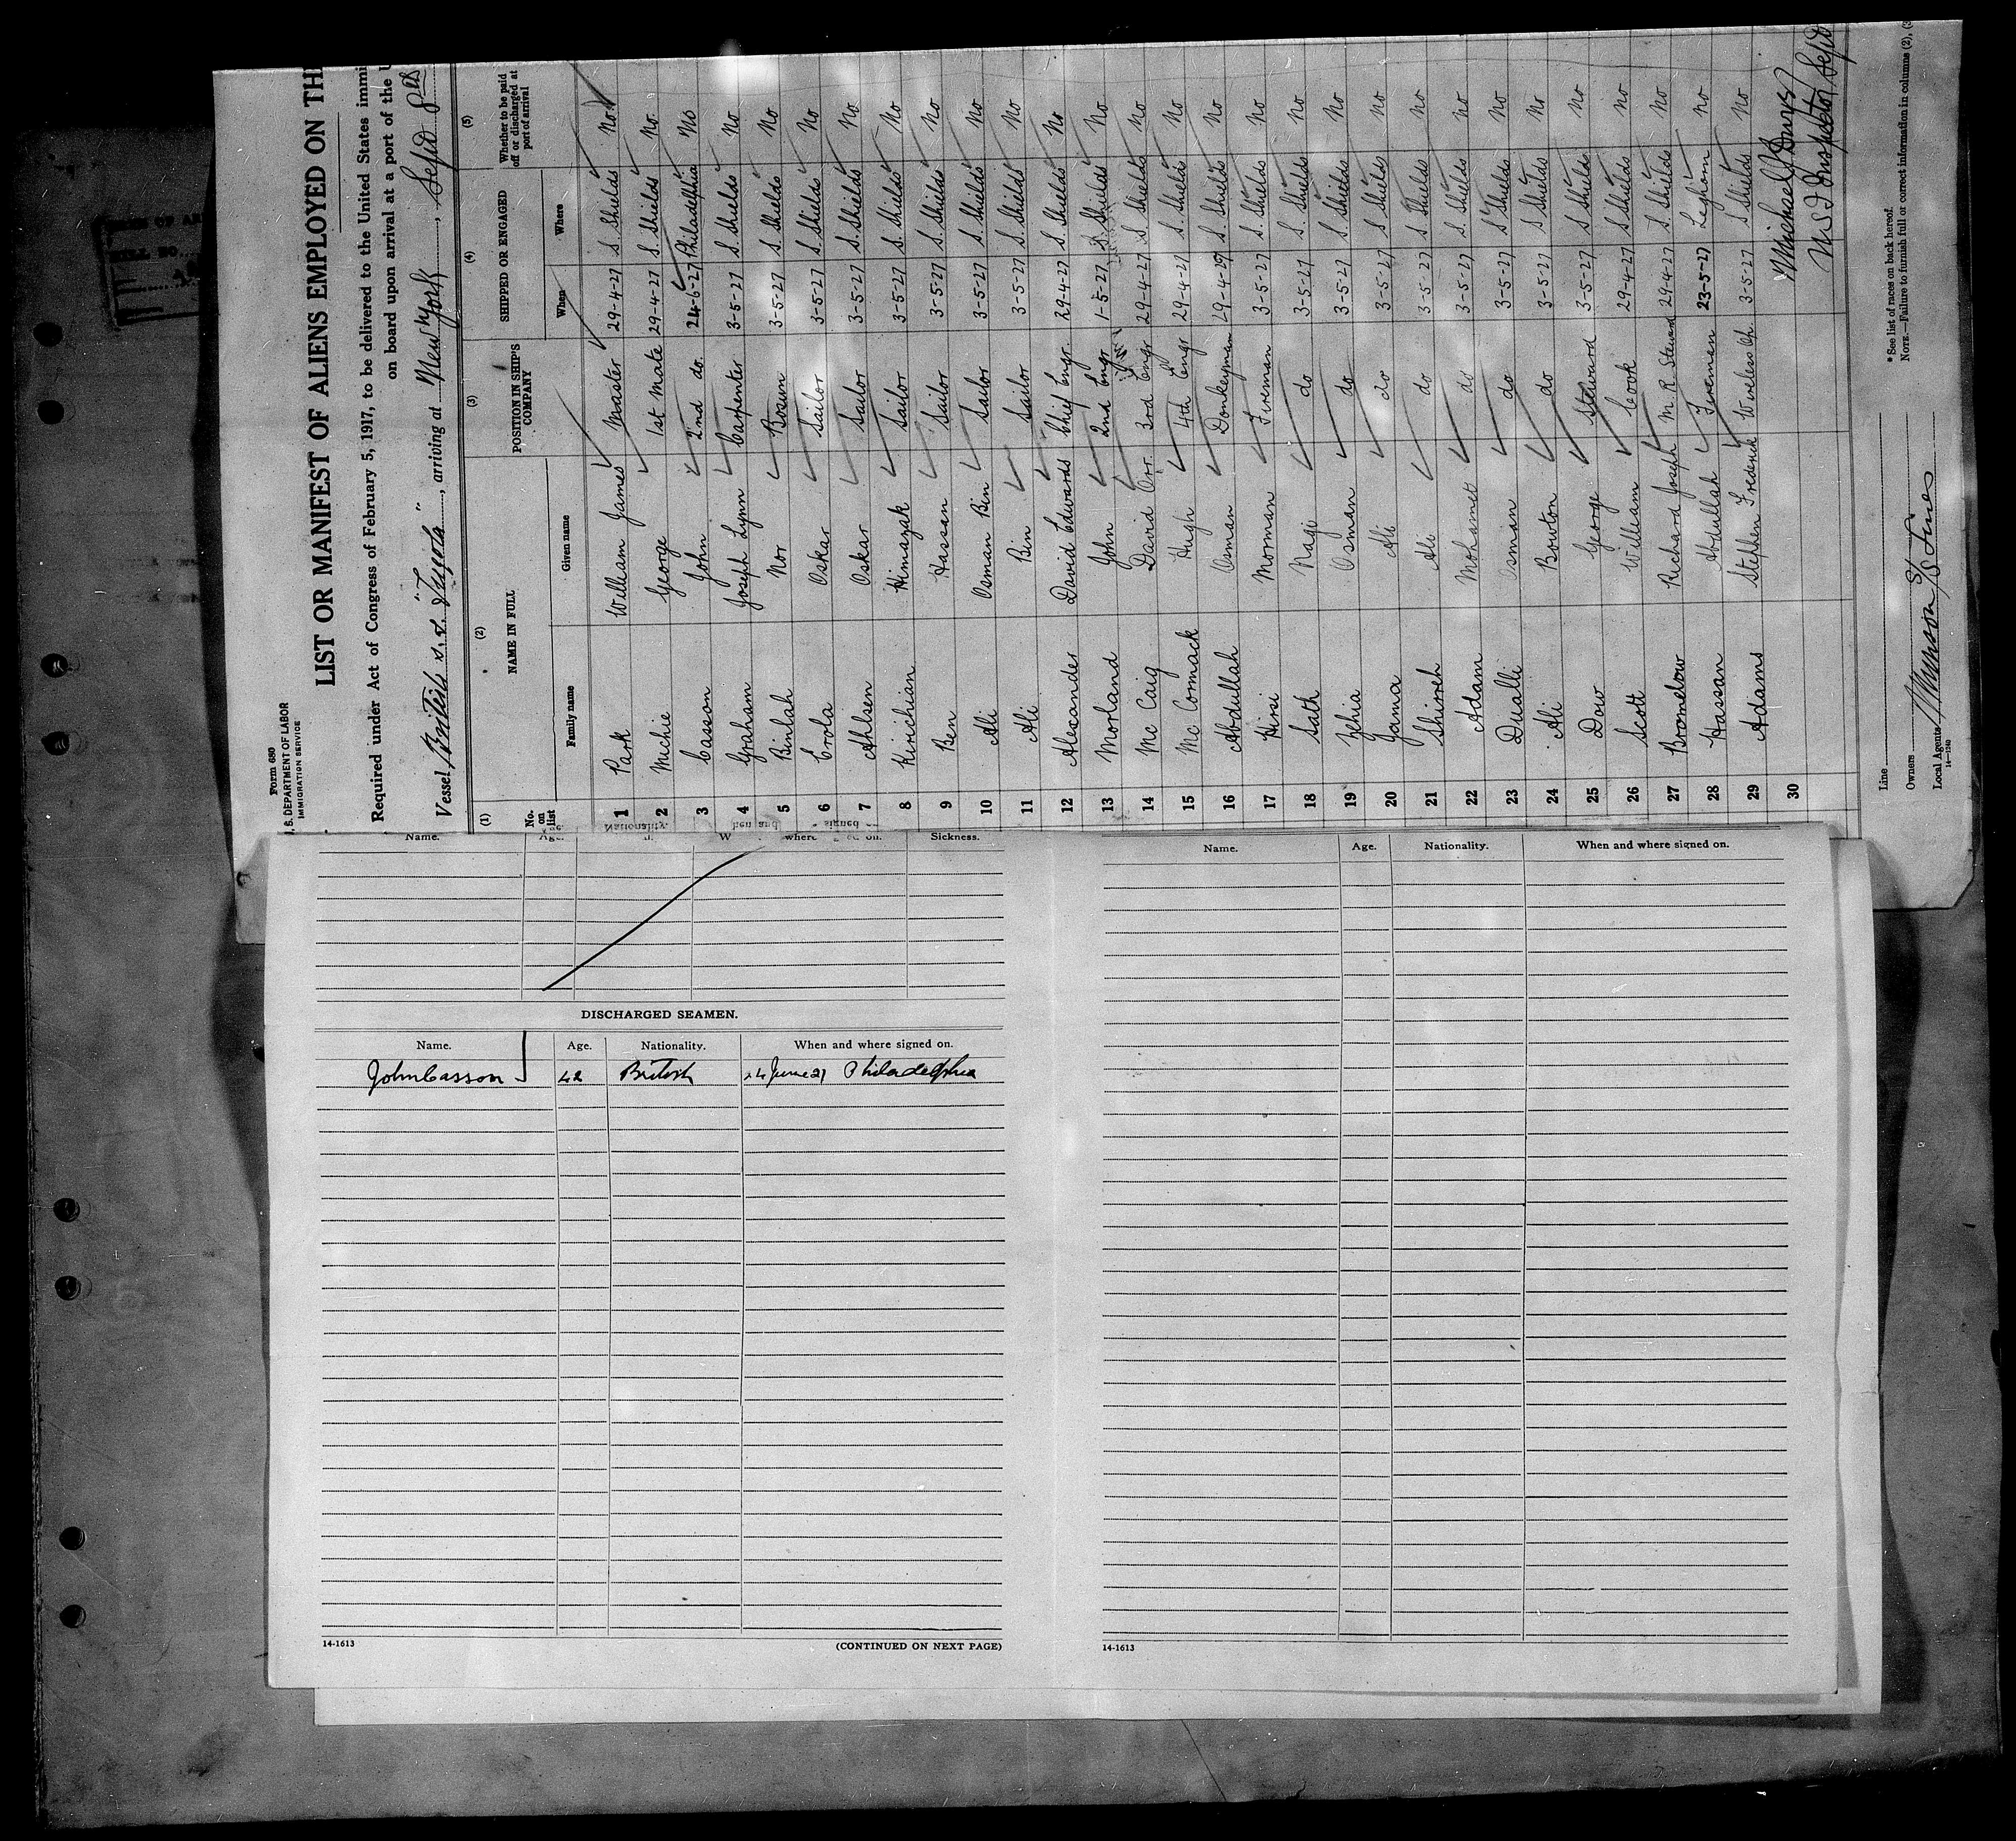 Form 680
U. S. DEPARTMENT OF LABOR
IMMIGRATION SERVICE
LIST OR MANIFEST OF ALIENS EMPLOYED ON TH
Required under Act of Congress of February 5, 1917, to be delivered to the United States immi
on board upon arrival at a port of the U
Vessel British s.s. , arriving at New York , Sept 8th
(1) (2) (3) (4) (5)
No. on list NAME IN FULL POSITION IN SHIP'S COMPANY SHIPPED OR ENGAGED Whether to be paid off or discharged at port of arrival
Family name Given name When Where
1 Park William James Master 29-4-27 S. Shields No
2 Michie George 1st Mate 29-4-27 S. Shields No
3 Casson John 2nd do. 24-6-27 Philadelphia No
4 Graham Joseph Lynn Carpenter 3-5-27 S. Shields No
5 Binlah Nor Bosun 3-5-27 S. Shields No
6 Crola Oskar Sailor 3-5-27 S. Shields No
7 Ahlsen Oskar Sailor 3-5-27 S. Shields No
8 Kirichian Himazak Sailor 3-5-27 S. Shields No
9 Ben Hassan Sailor 3-5-27 S. Shields No
10 Ali Osman Bin Sailor 3-5-27 S. Shields No
11 Ali Bin Sailor 3-5-27 S. Shields No
12 Alexander David Edwards Chief Engr. 29-4-27 S. Shields No
13 Morland John 2nd Engr 1-5-27 S. Shields No
14 Mc Caig David Orr. 3rd Engr 29-4-27 S. Shields No
15 Mc Cormack Hugh 4th Engr 29-4-27 S. Shields No
16 Abdullah Osman Donkeyman 29-4-27 S. Shields No
17 Hirsi Morman Fireman 3-5-27 S. Shields No
18 Sath Nagi do 3-5-27 S. Shields No
19 Osman do 3-5-27 S. Shields No
20 Jama Ali do 3-5-27 S Shields No
21 Shirreh Ali do 3-5-27 S Shields No
22 Adam Mohamed do 3-5-27 S. Shields No
23 Dualli Osman do 3-5-27 S Shields No
24 Ali Bowton do 3-5-27 S Shields No
25 Dow George Steward 3-5-27 S Shields No
26 Scott William Cook 29-4-27 S Shields No
27 Bromlow Richard Joseph M. R. Steward 29-4-27 S. Shields No
28 Hassan Abdullah Fireman 23-5-27 Leghorn No
29 Adams Stephen Frederick Wireless Op 3-5-27 S Shields No
30
U S Inspector
Line
Owners
Local Agents Munson S/S Lines
14—1240
* See list of races on back hereof.
NOTE.—Failure to furnish full or correct information in columns (2), (3
Name. Age. Sickness.
DISCHARGED SEAMEN.
Name. Age. Nationality. When and where signed on.
John Casson 42 British 24 June 27 Philadelphia
14-1613 (CONTINUED ON NEXT PAGE)
Name. Age. Nationality. When and where signed on.
14-1613